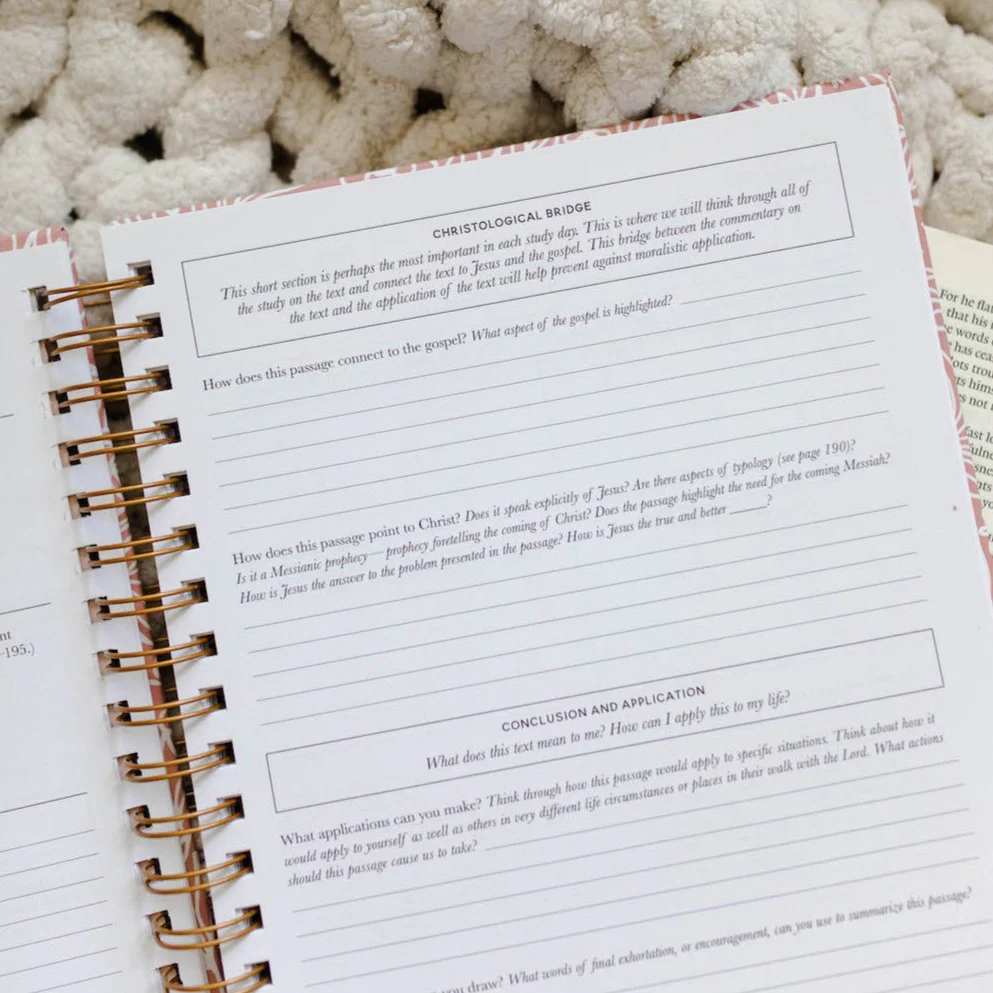 nt
-195.)
CHRISTOLOGICAL BRIDGE
This short section is perhaps the most important in each study day. This is where we will think through all of
the study on the text and connect the text to Jesus and the gospel. This bridge between the commentary on
the text and the application of the text will help prevent against moralistic application.
How does this passage connect to the gospel? What aspect of the gospel is highlighted?
How does this passage point to Christ? Does it speak explicitly of Jesus? Are there aspects of typology (see page 190)?
Is it a Messianic prophecy—prophecy foretelling the coming of Christ? Does the passage highlight the need for the coming Messiah?
How is Jesus the answer to the problem presented in the passage? How is Jesus the true and better _____?
CONCLUSION AND APPLICATION
What does this text mean to me? How can I apply this to my life?
What applications can you make? Think through how this passage would apply to specific situations. Think about how it
would apply to yourself as well as others in very different life circumstances or places in their walk with the Lord. What actions
should this passage cause us to take?
you draw? What words of final exhortation, or encouragement, can you use to summarize this passage?
For he fla
that his
words
has cea
ots trou
ts hims
s not